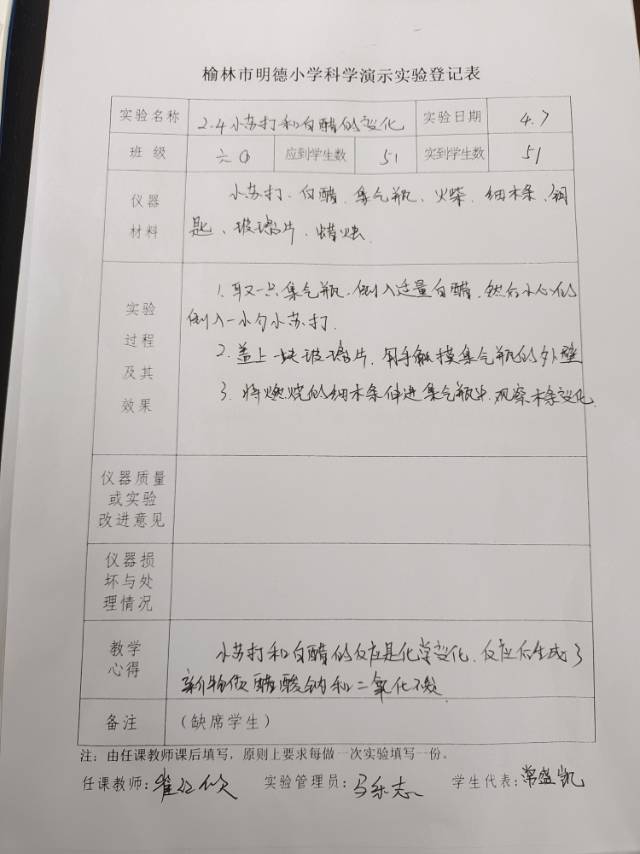 榆林市明德小学科学演示实验登记表
实验名称 2.4小苏打和白醋的变化 实验日期 4.7
班 级 应到学生数 51 实到学生数 51
仪器 小苏打、白醋、集气瓶、火柴、细木条、钥
材料 匙、玻璃片、蜡烛
实验 1.取一只集气瓶,倒入适量白醋,然后小心的
倒入一小勺小苏打.
过程 2.盖上一块玻璃片,用手触摸集气瓶的外壁
及其 3.将燃烧的细木条伸进集气瓶中,观察木条变化.
效果
仪器质量
或实验
改进意见
仪器损
坏与处
理情况
教学 小苏打和白醋的反应是化学变化,反应后生成了
心得 新物质醋酸钠和二氧化
备注 (缺席学生)
注:由任课教师课后填写,原则上要求每做一次实验填写一份。
任课教师: 实验管理员:马乐志 学生代表:常盛凯